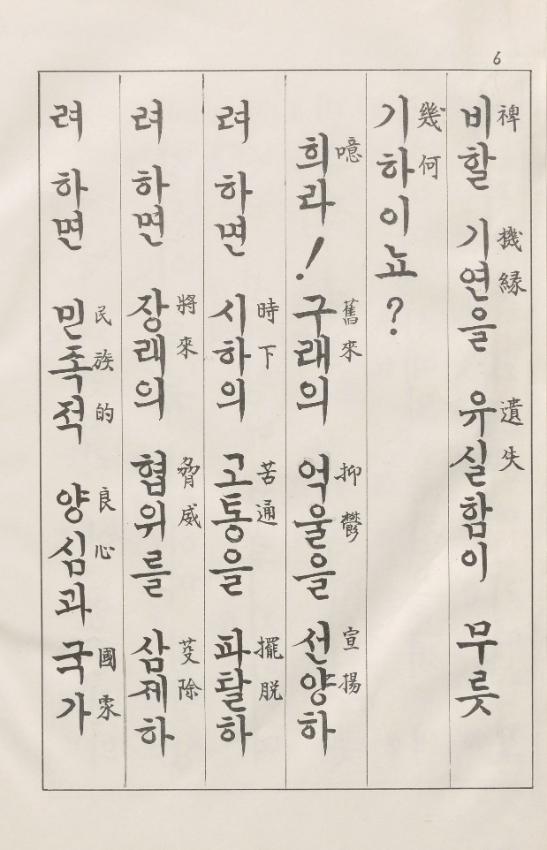 6
비할 기연을 유실함이 무릇
裨 機縁 遺失
기하이뇨?
幾何
희라! 구래의 억울을 선양하
噫 舊來 抑鬱 宣揚
려 하면 시하의 고통을 파탈하
時下 苦通 擺脫
려 하면 장래의 협위를 삼제하
將來 脅威 芟除
려 하면 민족적 양심과 국가
民族的 良心 國家